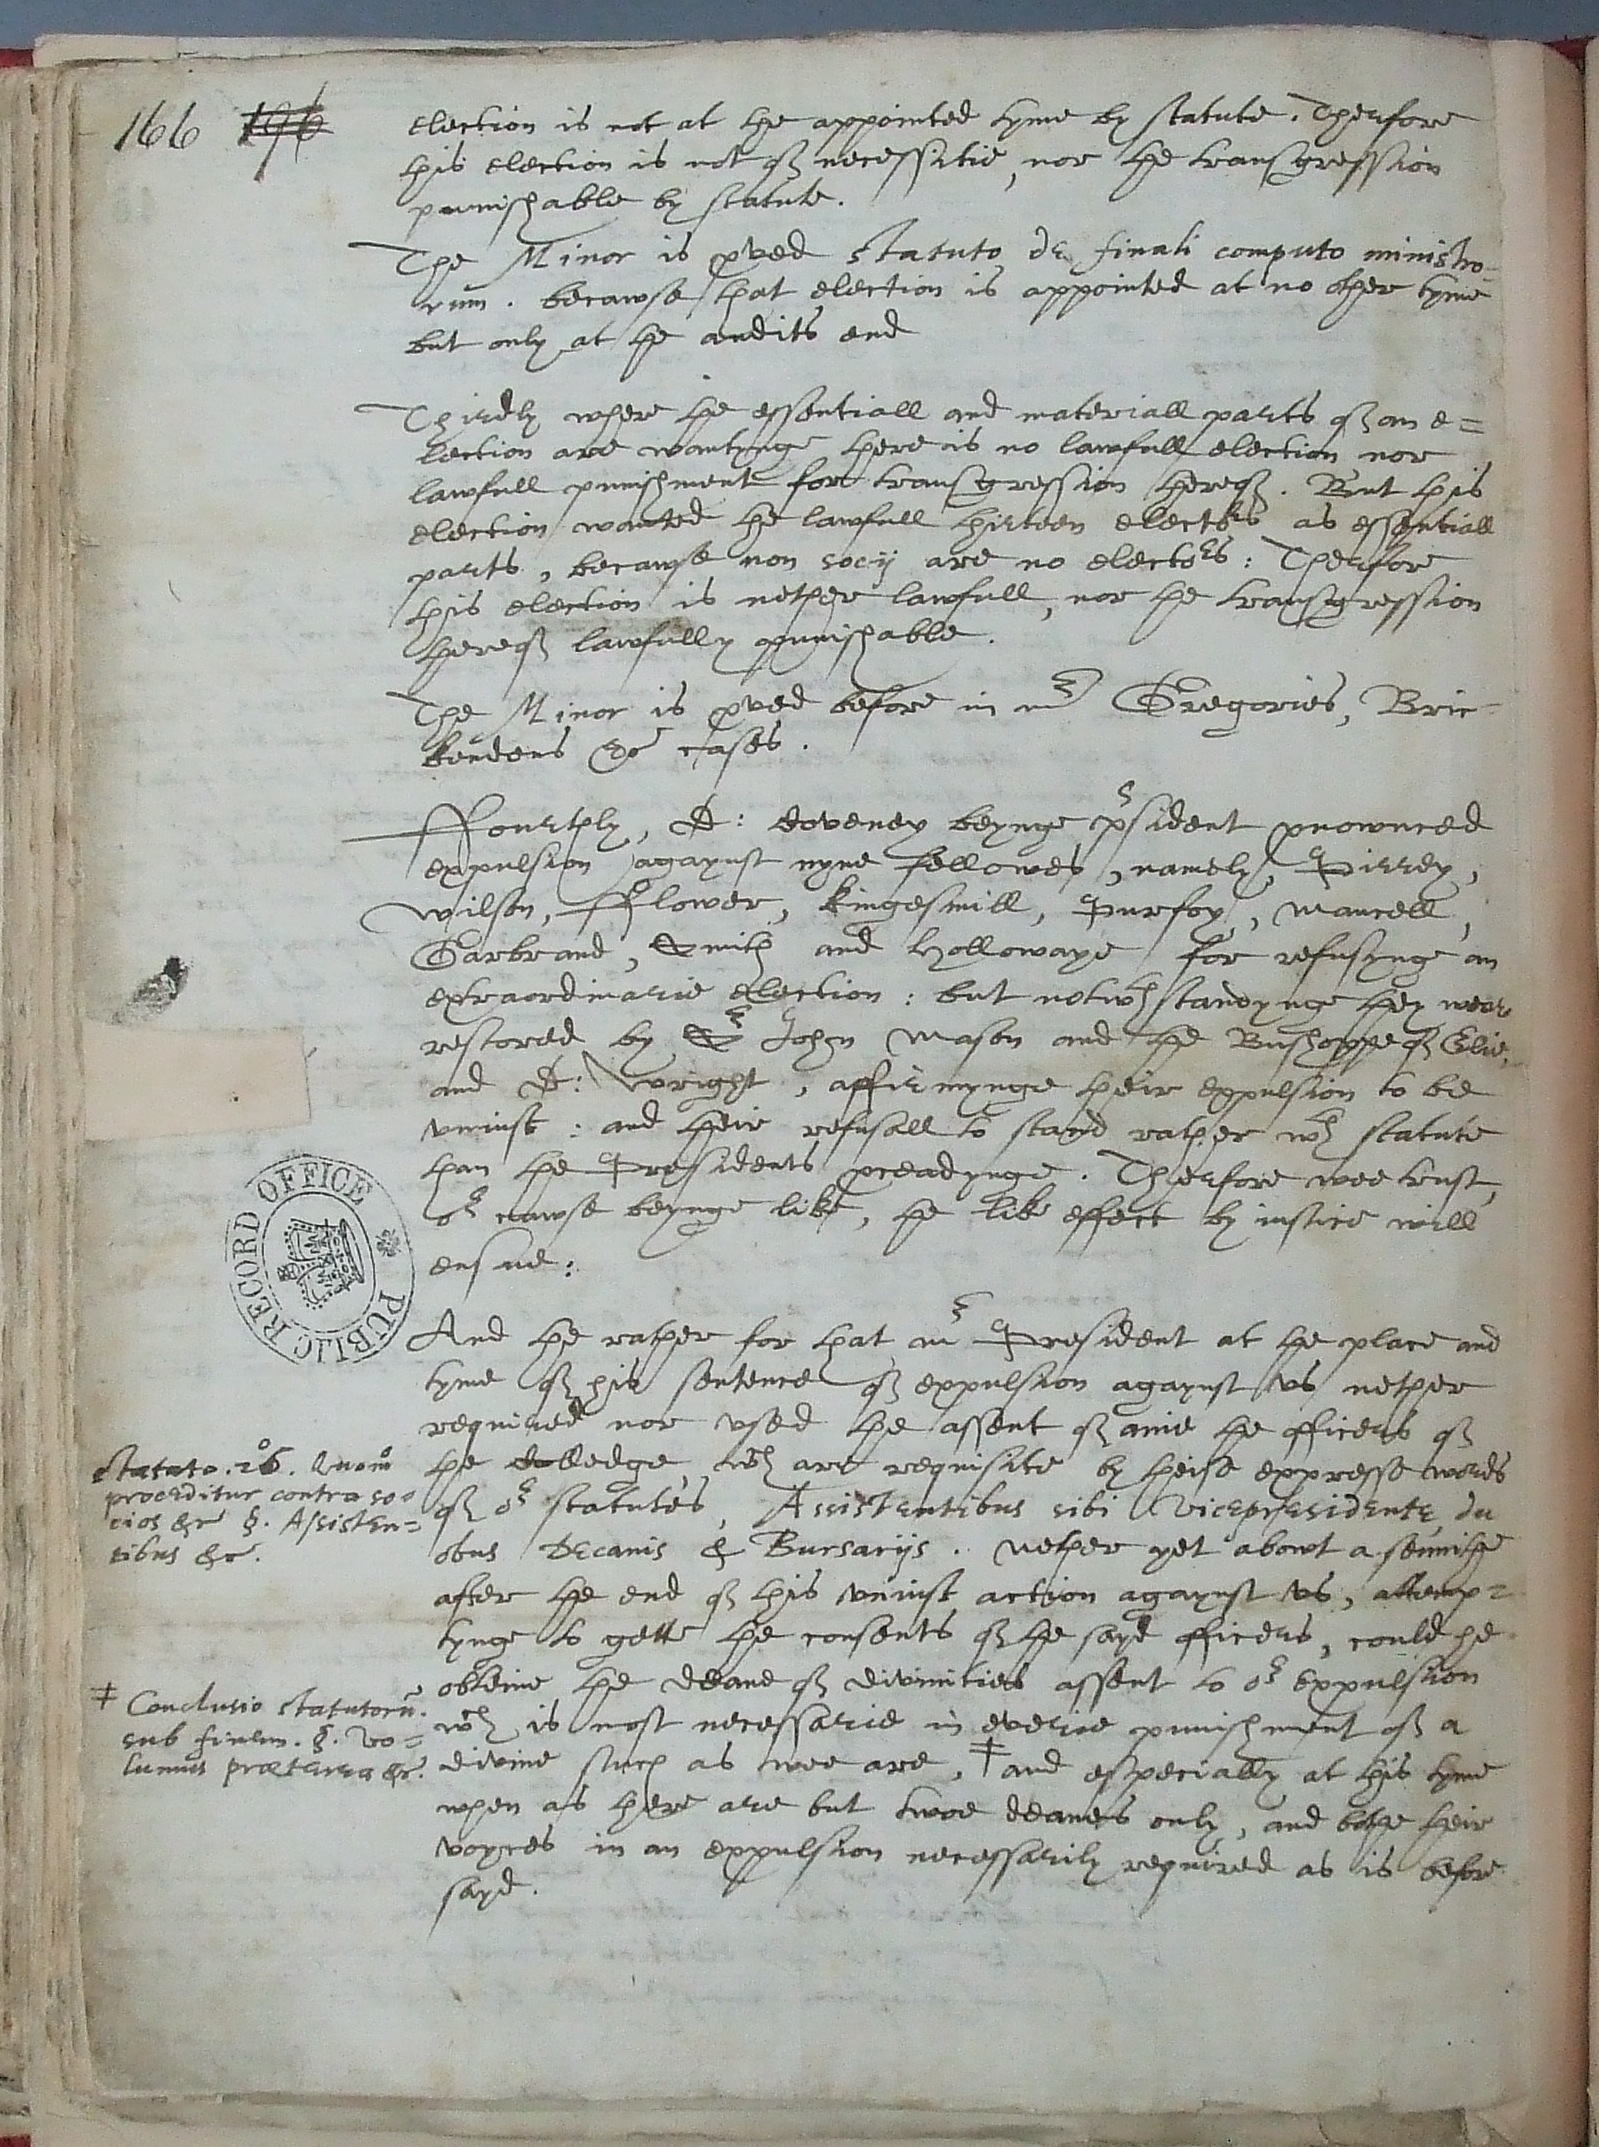 166 196
election is not at the appointed tyme by statute. Therfore
this election is not of necessitie, nor the transgression
punishable by statute.
The Minor is pved statuto de finali computo ministro-
rum. becawse that election is appointed at no other tyme
but only at the audits end
Thirdly where the essentiall and materiall parts of an e=
lection are wantynge there is no lawfull election nor
lawfull punishment for transgression therof. But this
election wanted the lawfull thirteen electors as essentiall
parts, becawse non socij are no electors: Therfore
this election is nether lawfull, nor the transgression
therof lawfully punishable.
The Minor is pved before in mr Gregories, Bric-
kendens &c cases.
Ffourthly, D: Coveney beynge psident pnownced
expulsion agaynst nyne fellowes, namely, Pirrey,
Wilson, Fflower, Kingesmill, Purfoy, Mancell,
Garbrand, Smith and Hollowaye for refusynge an
extraordinarie election: but notwthstandynge they wear
restored by Sr John Mason and the Bushoppe of Elie,
and D: Wright, affirmynge their expulsion to be
uniust: and their refusall to stand rather wth statute
than the Presidents pceadynge. Therfore wee trust,
or cawse beynge like, the like effect by iustice will
ensue:
And the rather for that mr President at the place and
tyme of his sentence of expulsion agaynst us nether
required nor used the assent of anie the officers of
the Colledge, wch are requisite by theise expresse words
of or statutes, Assistentibus sibi Vicepresidente, du
obus Decanis & Bursarijs. Nether yet abowt a sennithe
after the end of his uniust action agaynst us, attemp=
tynge to gette the consents of the sayd officers, could he
obteine the deane of divinities assent to or expulsion
wch is most necessarie in everie punishment of a
divine such as wee are, ‡ and especially at this tyme
when as there are but twoe deanes only, and bothe their
voyces in an expulsion necessarily required as is before
sayd.
Statuto. 26. Quomo
proceditur contra so=
cios &c §. Assisten=
tibus &c.
‡ Conclusio statutorū
sub finem. §. vo=
lumus præterea &c.
PUBLIC RECORD OFFICE